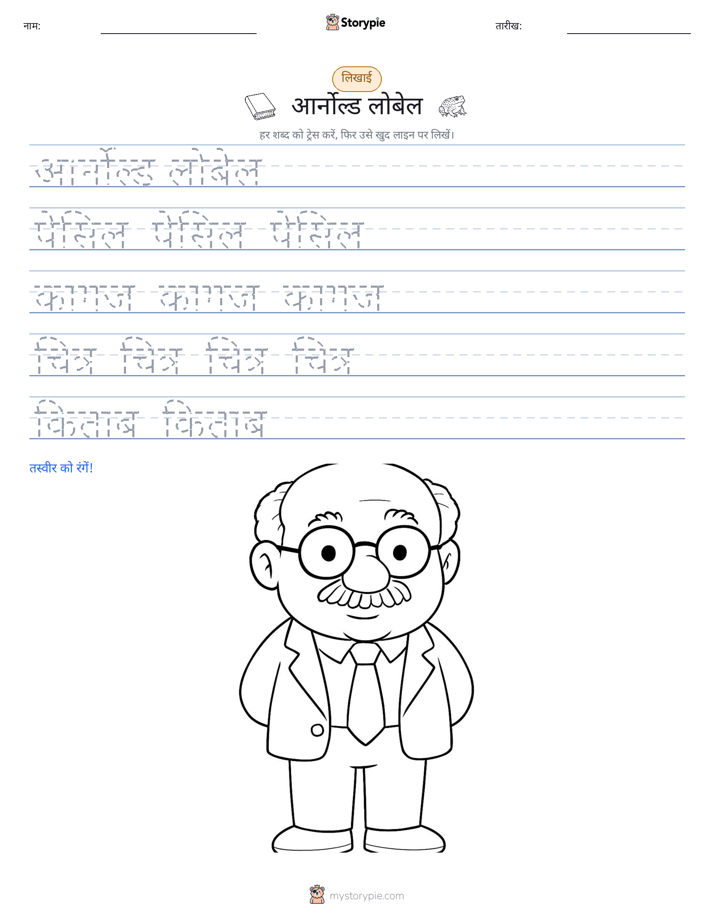 नाम:
Storypie
तारीख:
लिखाई
आर्नोल्ड लोबेल
हर शब्द को ट्रेस करें, फिर उसे खुद लाइन पर लिखें।
आर्नोल्ड लोबेल
पेंसिल पेंसिल पेंसिल
कागज कागज कागज
चित्र चित्र चित्र चित्र
किताब किताब
तस्वीर को रंगें!
mystorypie.com